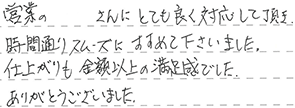 営業の さんにとても良く対応して頂き
時間通りスムーズにすすめて下さいました。
仕上がりも金額以上の満足感でした。
ありがとうございました。